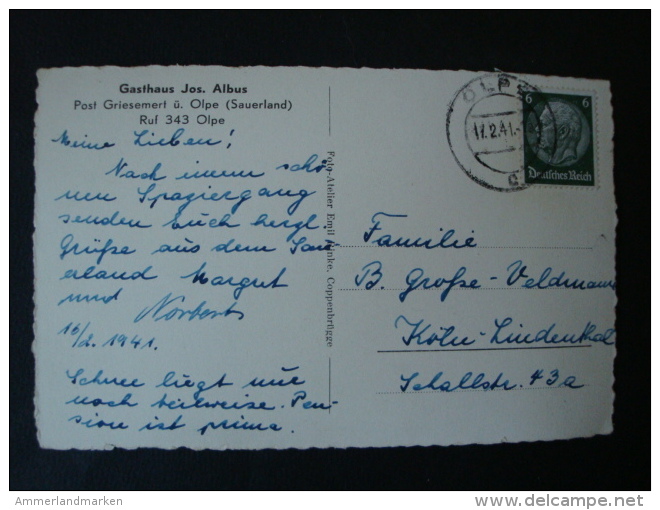 Gasthaus Jos. Albus
Post Griesemert ü. Olpe (Sauerland)
Ruf 343 Olpe
Meine Lieben!
Nach einem schö
nen Spaziergang
senden Euch herzl.
Grüße aus dem Sau
erland Margret
und Norbert
16/2. 1941.
Schnee liegt nur
noch teilweise. Pen-
sion ist prima.
Foto-Atelier Emil Coppenbrügge
OLPE
17.2.41.
6 6
Deutsches Reich
Familie
B. Große-Veldmann
Köln-Lindenthal
Schallstr. 43a
Ammerlandmarken
delcampe.net